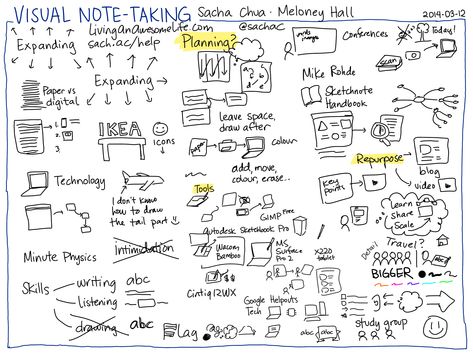 VISUAL NOTE-TAKING Sacha Chua · Meloney Hall 2014-03-12
Livinganawesomelife.com @sachac
sachac.ac/help
Expanding
Expanding
Planning?
Conferences
Today!
scan
Paper vs digital
1.
2.
3.
IKEA
Icons
leave space, draw after
paper
colour
add, move, colour, erase...
Mike Rohde
Sketchnote Handbook
Repurpose
blog
video
Key points
Learn
Share
Scale
Technology
I don't know how to draw the tail part
Tools
GIMP Free
autodesk Sketchbook Pro
Wacom Bamboo
MS Surface Pro 2
X220 tablet
Cintiq 12WX
Google Helpouts
Tech
Minute Physics
Intimidation
Skills
writing abc
listening
drawing abc
Lag
abc
abc
Detail
Travel?
abc
BIGGER
study group